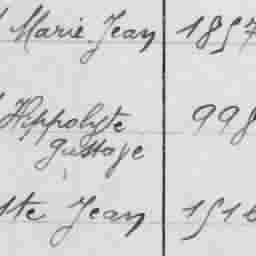 Marie Jean 1857
Hippolyte 998
gustave
tte Jean 1516